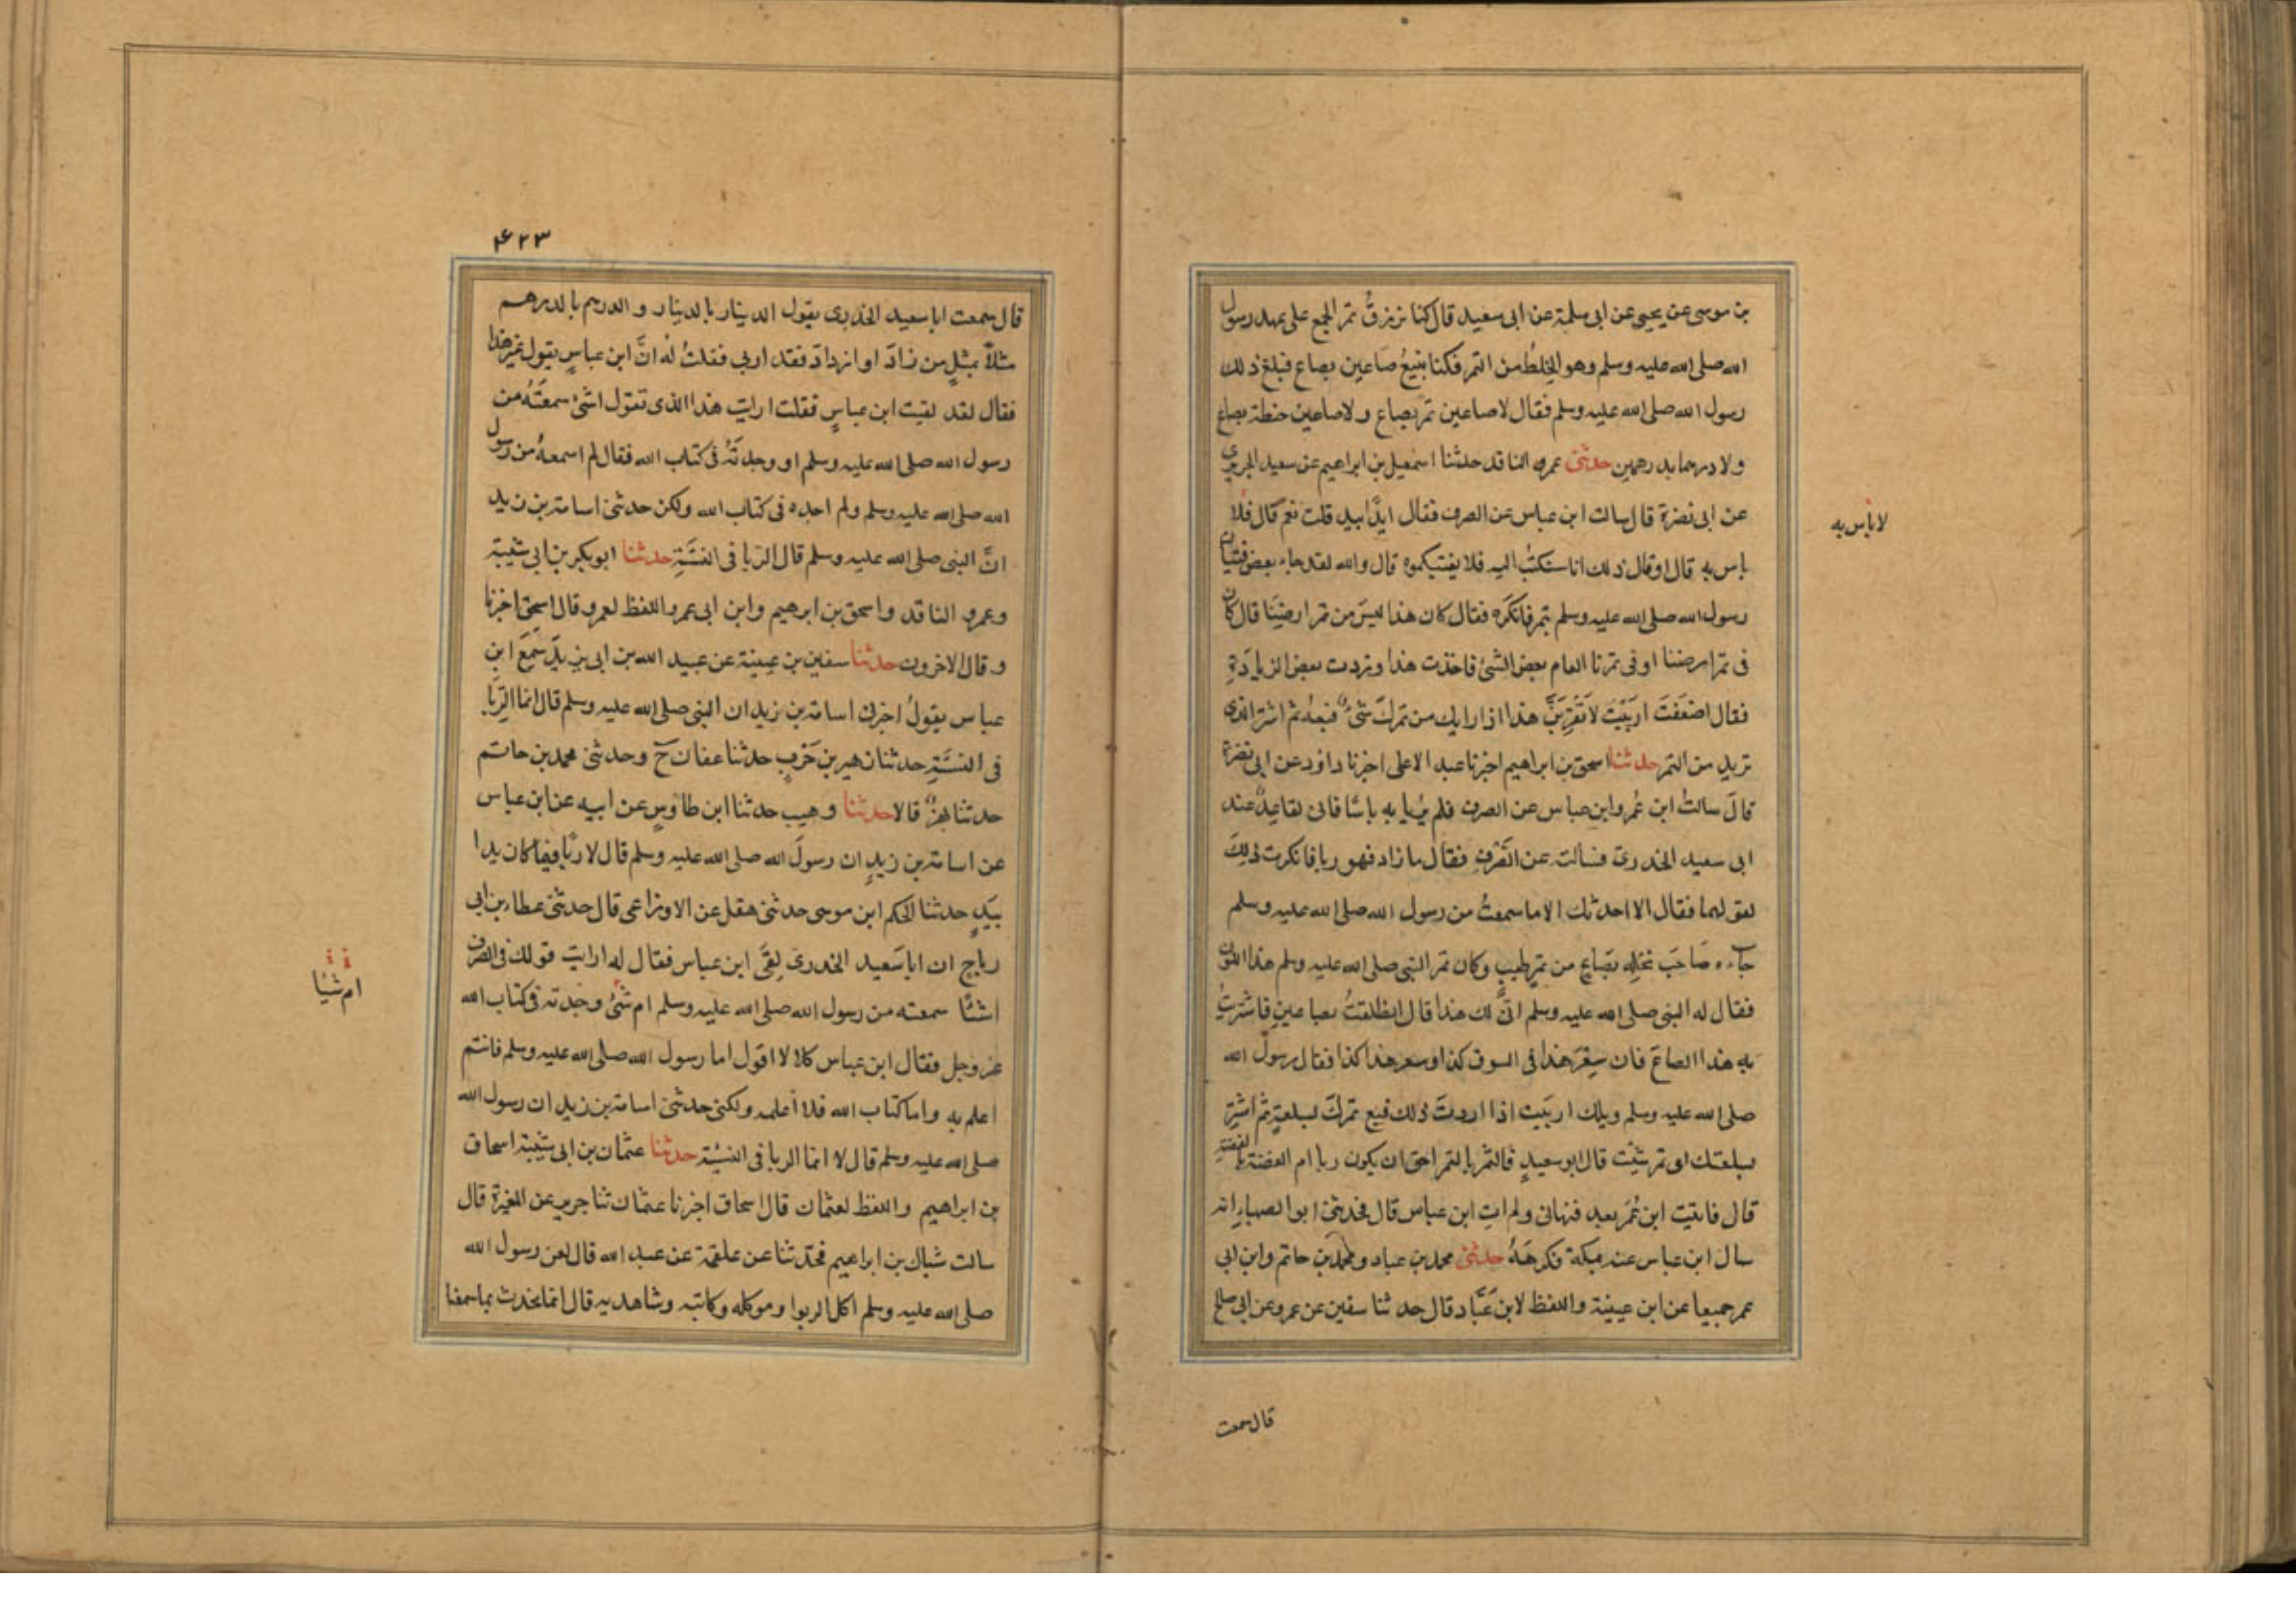 بن موسى عن يحيى عن ابى سلمة عن ابى سعيد قال كنا نرزقُ تمر الجمع على عهد رسول
الله صلى الله عليه وسلم وهو الخِلطُ من التمر فكنا نبيعُ صاعين بصاع فبلغ ذلك
رسول الله صلى الله عليه وسلم فقال لا صاعين تمر بصاع ولا صاعين حنطة بصاع
ولا درهما بدرهمين حدثنى عمرو الناقد حدثنا اسمعيل بن ابراهيم عن سعيد الجريرى
عن ابى نضرة قال سالت ابن عباس عن الصرف فقال ايدًا بيد قلت نعم قال فلا
لا باس به
باس به قال اوقال ذلك انا سنكتبُ اليه فلا يفتيكموه قال والله لقد جاء بعض فتيان
رسول الله صلى الله عليه وسلم بتمر فانكَرَه فقال كان هذا ليسَ من تمر ارضِنَا قال كان
فى تمر ارضنا او فى تمرنا العام بعض الشئ فاخذت هذا وزدت بعض الزيادَةِ
فقال اضعَفتَ اربَيْتَ لا تَقْرَبَنَّ هذا اذا رابك من تمرك شئٌ فبعهُ ثم اشتر الذى
تريد من التمر حدثنا اسحق بن ابراهيم اخبرنا عبد الاعلى اخبرنا داؤد عن ابى نضرة
قال سالتُ ابن عُمر وابن عباس عن الصرف فلم يريا به باسًا فانى لقاعِدٌ عند
ابى سعيد الخدرى فسالته عن الصَّرفِ فقال ما زاد فهو ربا فانكرت ذلِكَ
لقولهما فقال لا احدثك الا ما سمعتُ من رسول الله صلى الله عليه وسلم
جاءه صَاحبُ نخلِه بصَاعٍ من تمرٍ طيبٍ وكان تمر النبى صلى الله عليه وسلم هذا اللون
فقال له النبى صلى الله عليه وسلم انّى لك هذا قال انطلقتُ بصاعينِ فاشتريتُ
به هذا الصاعَ فان سِعْرَ هذا فى السوق كذا وسعر هذا كذا فقال رسول الله
صلى الله عليه وسلم ويلك اربَيت اذا اردتَ ذلك فبع تمركَ بسلعةٍ ثم اشترِ
بسلعتك اى تمر شئت قال ابو سعيدٍ فالتمْر بالتمر احق ان يكون ربا ام الفضة بالفضةِ
قال فاتيت ابن عُمَر بعد فنهانى ولم اتِ ابن عباس قال فحدثنى ابو الصهباء انه
سال ابن عباس عنه بمكة فكرهَهُ حدثنى محمد بن عباد ومحمد بن حاتم وابن ابى
عمر جميعا عن ابن عيينة واللفظ لابن عَبَّاد قال حدثنا سفين عن عمرو عن ابى صالح
قال سمعت
۴۲۳
قال سمعت ابا سعيد الخدرى يقول الدينار بالدينار والدرهم بالدرهم
مثلاً بمثلٍ من زادَ او ازدادَ فقد اربى فقلتُ له انَّ ابن عباسٍ يقول غير هذا
فقال لقد لقيت ابن عباسٍ فقلت ارايت هذا الذى تقول اشئ سمعتَهُ من
رسول الله صلى الله عليه وسلم او وجدتَهُ فى كتاب الله فقال لم اسمعهُ من رسول
الله صلى الله عليه وسلم ولم اجده فى كتاب الله ولكن حدثنى اسامة بن زيد
انَّ النبى صلى الله عليه وسلم قال الربا فى النسَّةِ حدثنا ابو بكر بن ابى شيبة
وعمرو الناقد واسحق بن ابرهيم وابن ابى عمر واللفظ لعمرو قال اسحق اخبرنا
وقال الاخرون حدثنا سفين بن عيينة عن عبيد الله بن ابى يزيد سَمعَ ابن
عباس يقولُ اخبرنى اسامة بن زيد ان النبى صلى الله عليه وسلم قال انما الرِّبا
فى النسَّةِ حدثنا زهير بن حَرْبٍ حدثنا عفان ح وحدثنى محمد بن حاتم
حدثنا بهزٌ قالا حدثنا وهيب حدثنا ابن طاوسٍ عن ابيه عن ابن عباس
عن اسامة بن زيدٍ ان رسولَ الله صلى الله عليه وسلم قال لا ربًا فيما كان يدا
بيَدٍ حدثنا الحكم ابن موسى حدثنى هقل عن الاوزاعى قال حدثنى عطاء بن ابى
رباح ان ابا سَعيد الخدرى لِقىَ ابن عباس فقال له ارايت قولك فى الصرف
اشئًا سمعته من رسول الله صلى الله عليه وسلم ام شئٌ وجدته فى كتاب الله
ام شيًا
عز وجل فقال ابن عباس كلا لا اقول اما رسول الله صلى الله عليه وسلم فانتم
اعلم به واما كتاب الله فلا اعلمه ولكنى حدثنى اسامة بن زيد ان رسول الله
صلى الله عليه وسلم قال لا انما الربا فى النسْئة حدثنا عثمان بن ابى شيبة اسحاق
بن ابراهيم واللفظ لعثمان قال اسحاق اخبرنا عثمان ثنا جرير عن المغيرة قال
سالت شباك بن ابراهيم فحدثنا عن علقمة عن عبد الله قال لعن رسول الله
صلى الله عليه وسلم اكل الربوا وموكله وكاتبه وشاهديه قال انما يحدث بما سمعنا